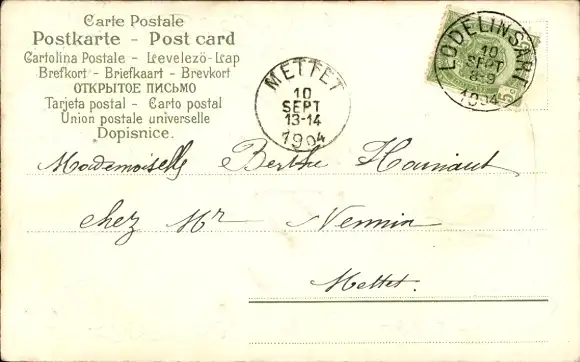 Carte Postale
Postkarte - Post card
Cartolina Postale - Levelező-Lap
Brefkort - Briefkaart - Brevkort
ОТКРЫТОЕ ПИСЬМО
Tarjeta postal - Carto postal
Union postale universelle
Dopisnice.
METTET
10
SEPT
13-14
1904
LODELINSART
10
SEPT
8-9
1904
Mademoiselle Berthe Hainaut
chez Mr Nennin
Mettet.